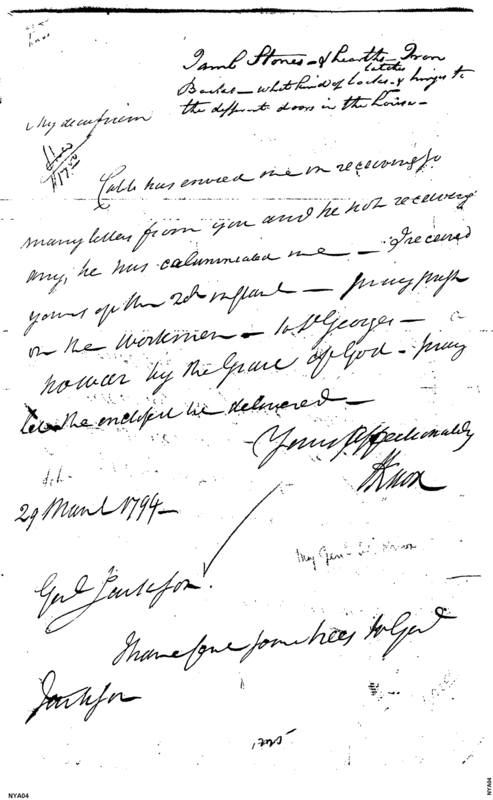 Jamb Stones - & hearths - Iron
Backs - what kind of locks - latches & hinges to
the different doors in the house -
My dear friend
Cobb has envied me in receiving so
many letters from you and he not receiving
any, he has calumniated me - I received
yours of the 2d instant - pray push
on the workmen - to St Georges -
however by the Grace of God - pray
let the enclosed be delivered -
Yours Affectionately
HKnox
29 March 1794 -
My Genl
Genl Jackson.
I have some trees to Genl
Jackson
1795
NYA04
NYA04